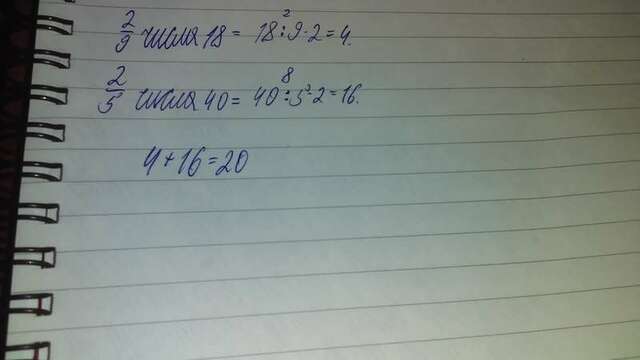 2/9 числа 18 = 18 : 9 · 2 = 4.
2/5 числа 40 = 40 : 5 · 2 = 16.
4 + 16 = 20